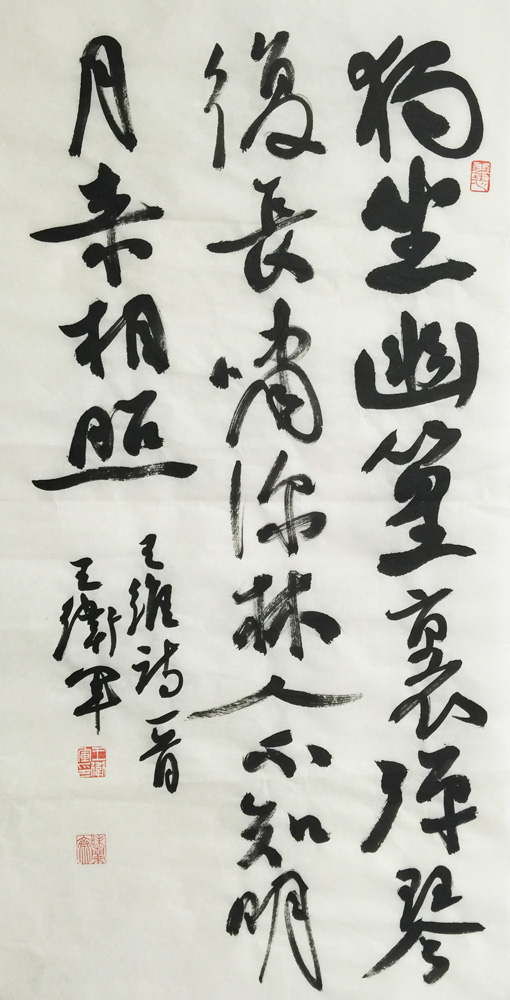 独坐幽篁裏弹琴
復長啸深林人不知明
月来相照
王維詩一首
王衛軍